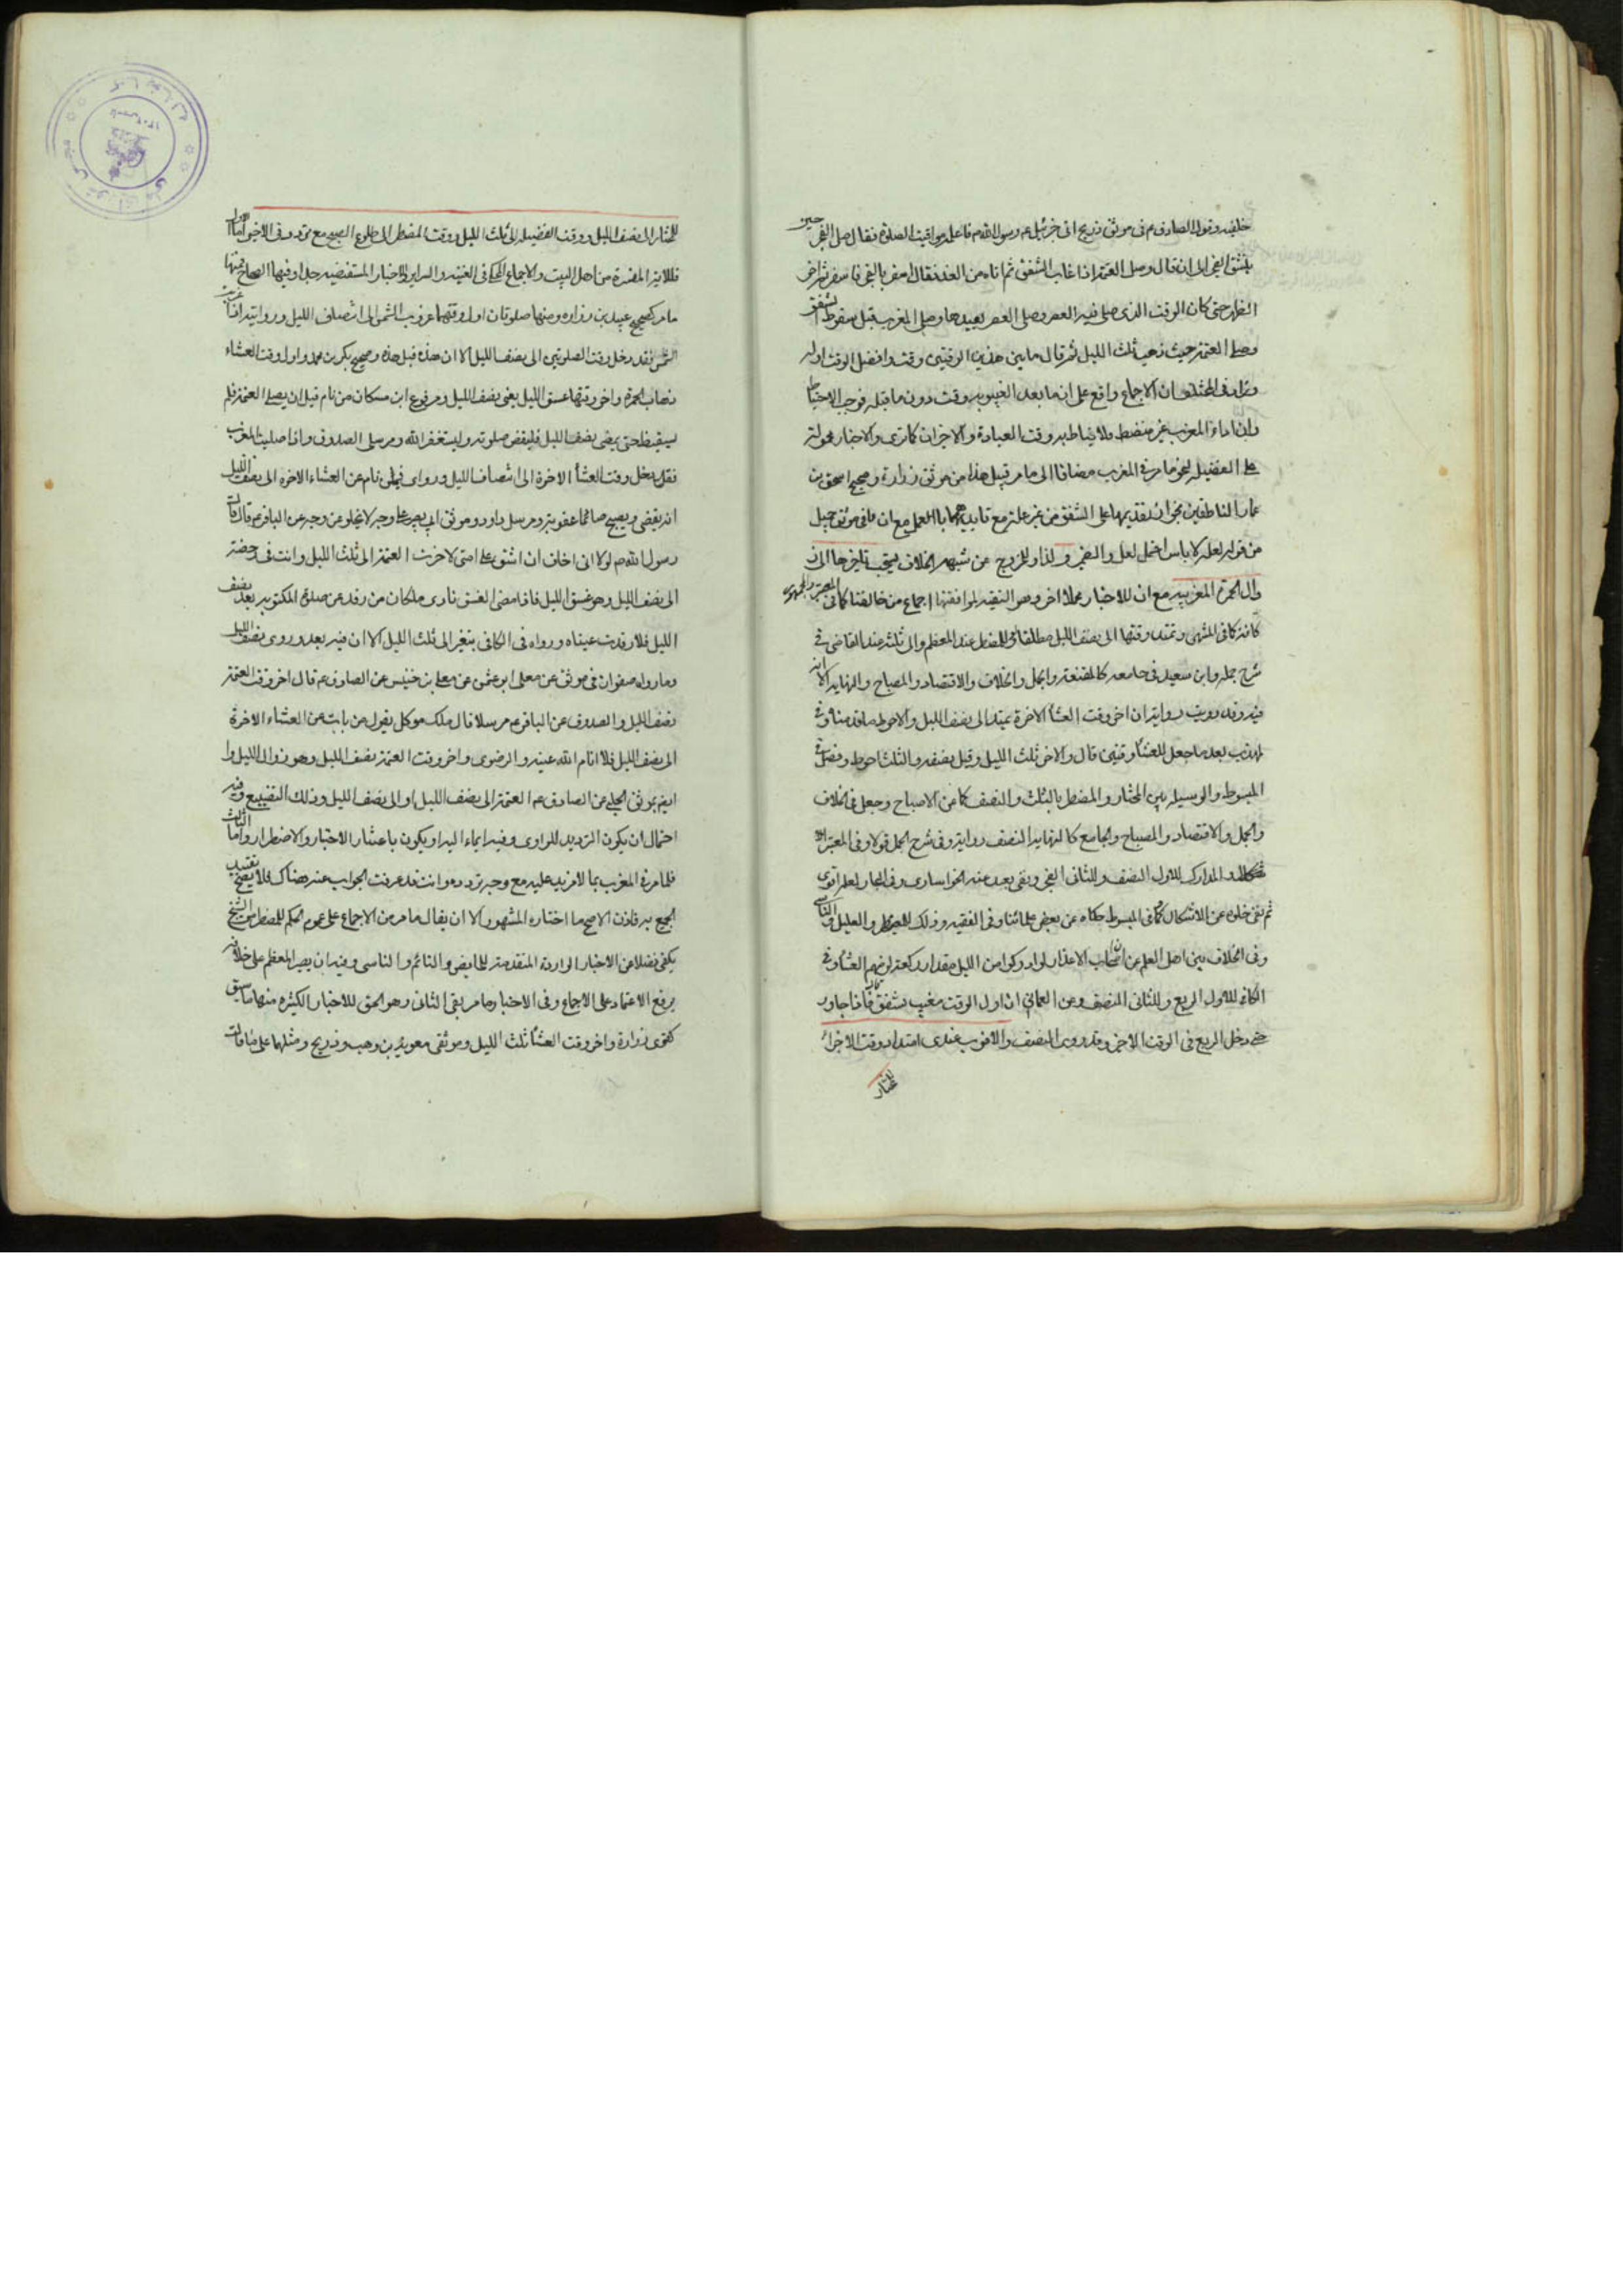 خليفه وقول الصادق ع في موثق ذريح اتى جبرئيل ع رسول الله ص فاعلمه مواقيت الصلوة فقال صل الفجر حين
ينشق الفجر الى ان قال وصل العتمة اذا غاب الشفق ثم اتاه من الغد فقال اسفر بالفجر فاسفر ثم اخر
الظهر حتى كان الوقت الذى صلى فيه العصر وصلى العصر بعيدها وصلى المغرب قبل سقوط الشفق
وصلى العتمة حيث ذهب ثلث الليل ثم قال ما بين هذين الوقتين وقت وافضل الوقت اوله
وزاد في ان الاجماع واقع على ان ما بعد الغيبوبة وقت دون ما قبله فوجب الاحتياط
وان اداء المغرب غير منضبط فلا يناط به وقت العبادة والاجزان كما ترى والاخبار محمولة
على الفضيلة لنحو ما مر في المغرب مضافا الى ما مر قبيل هذا من موثق زرارة وصحيح اسحق بن
عمار الناطقين بجواز تقديمها على الشفق من غير علة مع تاييدهما بالعمل مع ان ما في موثق جميل
من قوله لعله لا باس اعمل لعل والنفى ولذا وللخروج عن شبهة الخلاف يستحب تاخيرها الى ان
زوال الحمرة المغربية مع ان للاخبار محملا اخر وهو التقية لموافقتها اجماع من خالفنا كما في المعتبر والجمهور
كافة كما في المنتهى وتمتد وقتها الى نصف الليل مطلقا او للمضطر عند المعظم والى ثلثه عند القاضي في
شرح جمله وابن سعيد في جامعه كالمقنعة والجمل والخلاف والاقتصاد والمصباح والنهاية الا انه
فيه وقد رويت رواية ان اخر وقت العشاء الاخرة يمتد الى نصف الليل والاحوط ما قدمناه وفي
المهذب بعد ما جعل للعشاء وقتين قال والاخر ثلث الليل وقيل نصفه والثلث احوط وفصل في
المبسوط والوسيلة بين المختار والمضطر بالثلث والنصف كما عن الاصباح وجعل في الخلاف
والجمل والاقتصاد والمصباح والجامع كالنهاية النصف رواية وفي شرح الجمل قولا وفي المعتبر
والمدارك للاول النصف وللثاني الفجر ونفى بعد عنه الخراساري وفي البحار لعله اقوى
ثم نفى خلوه عن الاشكال كما في المبسوط حكاه عن بعض علمائنا وفي الفقيه وذلك للمضطر والعليل والناسي
وفى الخلاف بين اهل العلم عن ان اصحاب الاعذار لو ادركوا من الليل مقدار ركعة لزمهم العشاء وفي
الكافي للاول الربع وللثاني النصف وعن العماني ان اول الوقت مغيب الشفق فاذا جاوز
حتى دخل الربع في الوقت الاخر وقد روى النصف والاقرب عندى امتداد وقت الاجزاء
للمختار
للمختار الى نصف الليل ووقت الفضيلة الى ثلث الليل ووقت المضطر الى طلوع الصبح مع تردد في الاخير اما الاول
فللاية المفسرة من اهل البيت والاجماع المحكى في الغنية والسراير والاخبار المستفيضة جدا وفيها الصحاح فمنها
ما مر كصحيح عبيد بن زراره ومنها صلوتان اول وقتهما غروب الشمس الى انتصاف الليل وروايته اذا غربت
الشمس فقد دخل وقت الصلوتين الى نصف الليل الا ان هذه قبل هذه وصحيح بكر بن محمد واول وقت العشاء
ذهاب الحمرة واخر وقتها غسق الليل يعنى نصف الليل ومرفوع ابن مسكان من نام قبل ان يصلى العتمة فلم
يستيقظ حتى يمضى نصف الليل فليقض صلوته وليستغفر الله ومرسل الصدوق واذا صليت المغرب
فقد دخل وقت العشاء الاخرة الى انتصاف الليل وروى فيمن نام عن العشاء الاخرة الى نصف الليل
انه يقضى ويصبح صائما عقوبة ومرسل داود وموثق ابى بصير على وجه لا يخلو عن وجه عن الباقر ع قال قال
رسول الله ص لولا انى اخاف ان اشق على امتى لاخرت العتمة الى ثلث الليل وانت في رخصة
الى نصف الليل وهو غسق الليل فاذا مضى الغسق نادى ملكان من رقد عن صلوة المكتوبة بعد نصف
الليل فلا رقدت عيناه ورواه في الكافي بتغير الى ثلث الليل الا ان فيه بعد وروى نصف الليل
وما رواه صفوان في موثق عن معلى ابى عثمن عن معلى بن خنيس عن الصادق ع قال اخر وقت العتمة
نصف الليل والصدوق عن الباقر ع مرسلا قال ملك موكل يقول من بات عن العشاء الاخرة
الى نصف الليل فلا انام الله عينه والرضوى واخر وقت العتمة نصف الليل وهو زوال الليل و
ايده بموثق الحلبي عن الصادق ع العتمة الى نصف الليل او الى نصف الليل وذلك التضييع وفيه
احتمال ان يكون الترديد للراوى وفيه ايماء اليه او يكون باعتبار الاختيار والاضطرار واما الثالث
فلما مر في المغرب بما لا مزيد عليه مع وجه تردده وانت قد عرفت الجواب عنه هناك فلا يصح تقييد
الجمع به فاذن الاصح ما اختاره المشهور الا ان يقال ما مر من الاجماع على عموم الحكم للمضطر من الشيخ
يكفى فضلا عن الاخبار الواردة المتقدمة للحايض والنائم والناسى وفيه ان يصير المعظم على خلافه
يرفع الاعتماد على الاجماع وفي الاخبار وما مر بقى الثانى وهو الحق للاخبار الكثيره منها ما سبق
كقوى زرارة واخر وقت العشاء ثلث الليل وموثقى معوية بن وهب وذريح ومثلهما على ما قالت